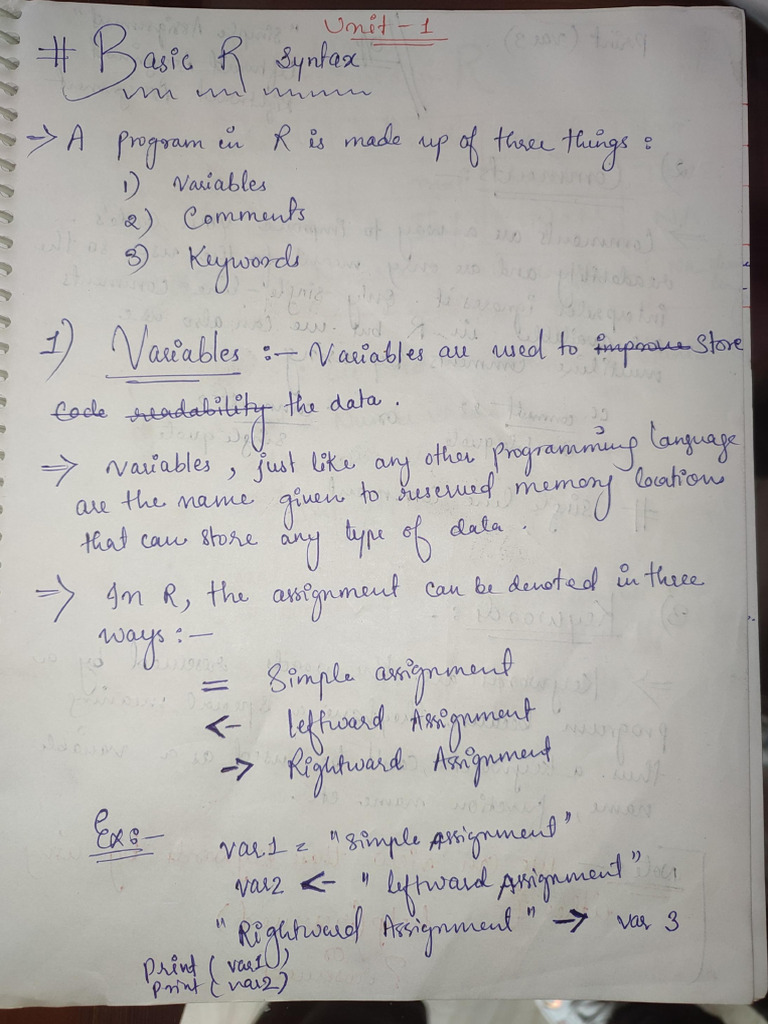 Unit - 1
# Basic R Syntax
→ A program in R is made up of three things :
1) Variables
2) Comments
3) Keywords
1) Variables :- Variables are used to improve store
code readability the data.
⇒ Variables, just like any other programming language
are the name given to reserved memory location
that can store any type of data.
⇒ In R, the assignment can be denoted in three
ways :-
= Simple assignment
<- leftward Assignment
-> Rightward Assignment
Ex:-
var1 = "Simple Assignment"
var2 <- "leftward Assignment"
"Rightward Assignment" -> var 3
print(var1)
print(var2)